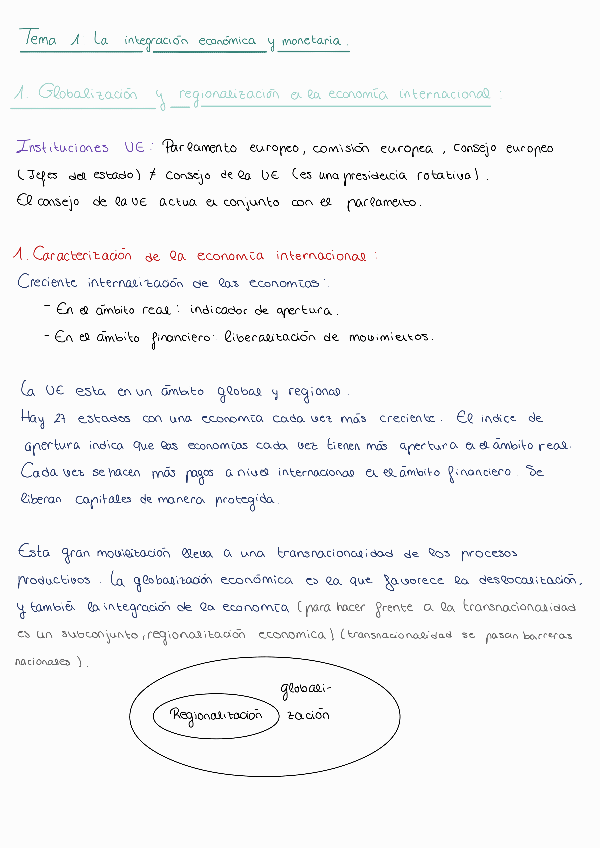 Tema 1 La integración económica y monetaria.
1. Globalización y regionalización en la economía internacional:
Instituciones UE: Parlamento europeo, comisión europea, consejo europeo
(Jefes del estado) ≠ consejo de la UE (es una presidencia rotativa).
El consejo de la UE actua en conjunto con el parlamento.
1. Caracterización de la economía internacional:
Creciente internalización de las economías:
- En el ámbito real: indicador de apertura.
- En el ámbito financiero: liberalitación de movimientos.
La UE esta en un ámbito global y regional.
Hay 27 estados con una economía cada vez más creciente. El indice de
apertura indica que las economías cada vez tienen más apertura en el ámbito real.
Cada vez se hacen más pagos a nivel internacional en el ámbito financiero. Se
liberan capitales de manera protegida.
Esta gran movilitación lleva a una transnacionalidad de los procesos
productivos. La globalización económica es la que favorece la deslocalitación,
y también la integración de la economía (para hacer frente a la transnacionalidad
es un subconjunto, regionalitación economica) (transnacionalidad se pasan barreras
nacionales).
globali-
Regionalización zación